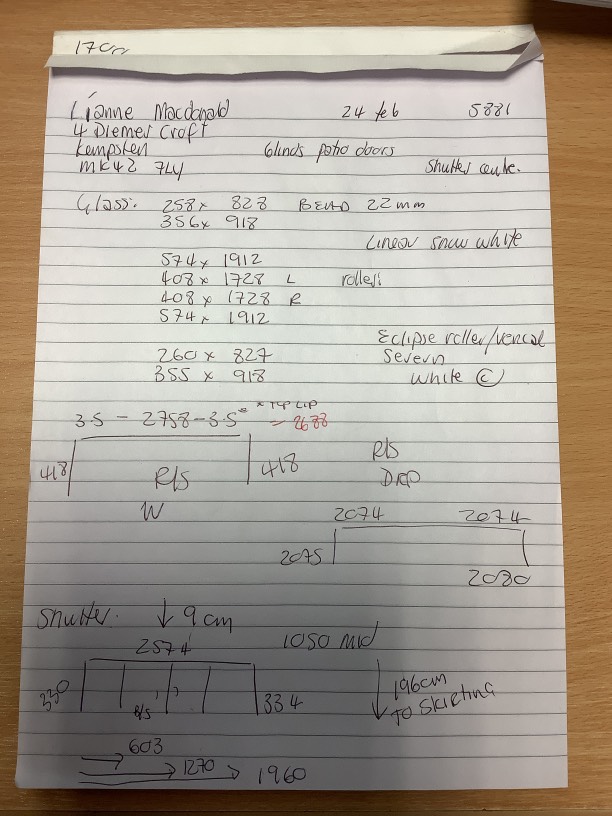 17cm
Lianne Macdonald 24 feb 5881
4 Diemer Croft
Kempsten Blinds patio doors
MK42 7LY Shutter centre.
Glass: 258 x 828 BEAD 22mm
356 x 918
Linear snow white
574 x 1912
408 x 1728 L rollers
408 x 1728 R
574 x 1912
Eclipse roller/vertical
260 x 827 Severn
355 x 918 White C
* TOP LIP
35 - 2758 - 35* = 2688
418 R/S 418 R/S
W DROP
2074 2074
2075
2080
Shutter: ↓ 9cm
2574 1050 mid
330 R/S 334
196cm
TO SKIRTING
603
1270
1960